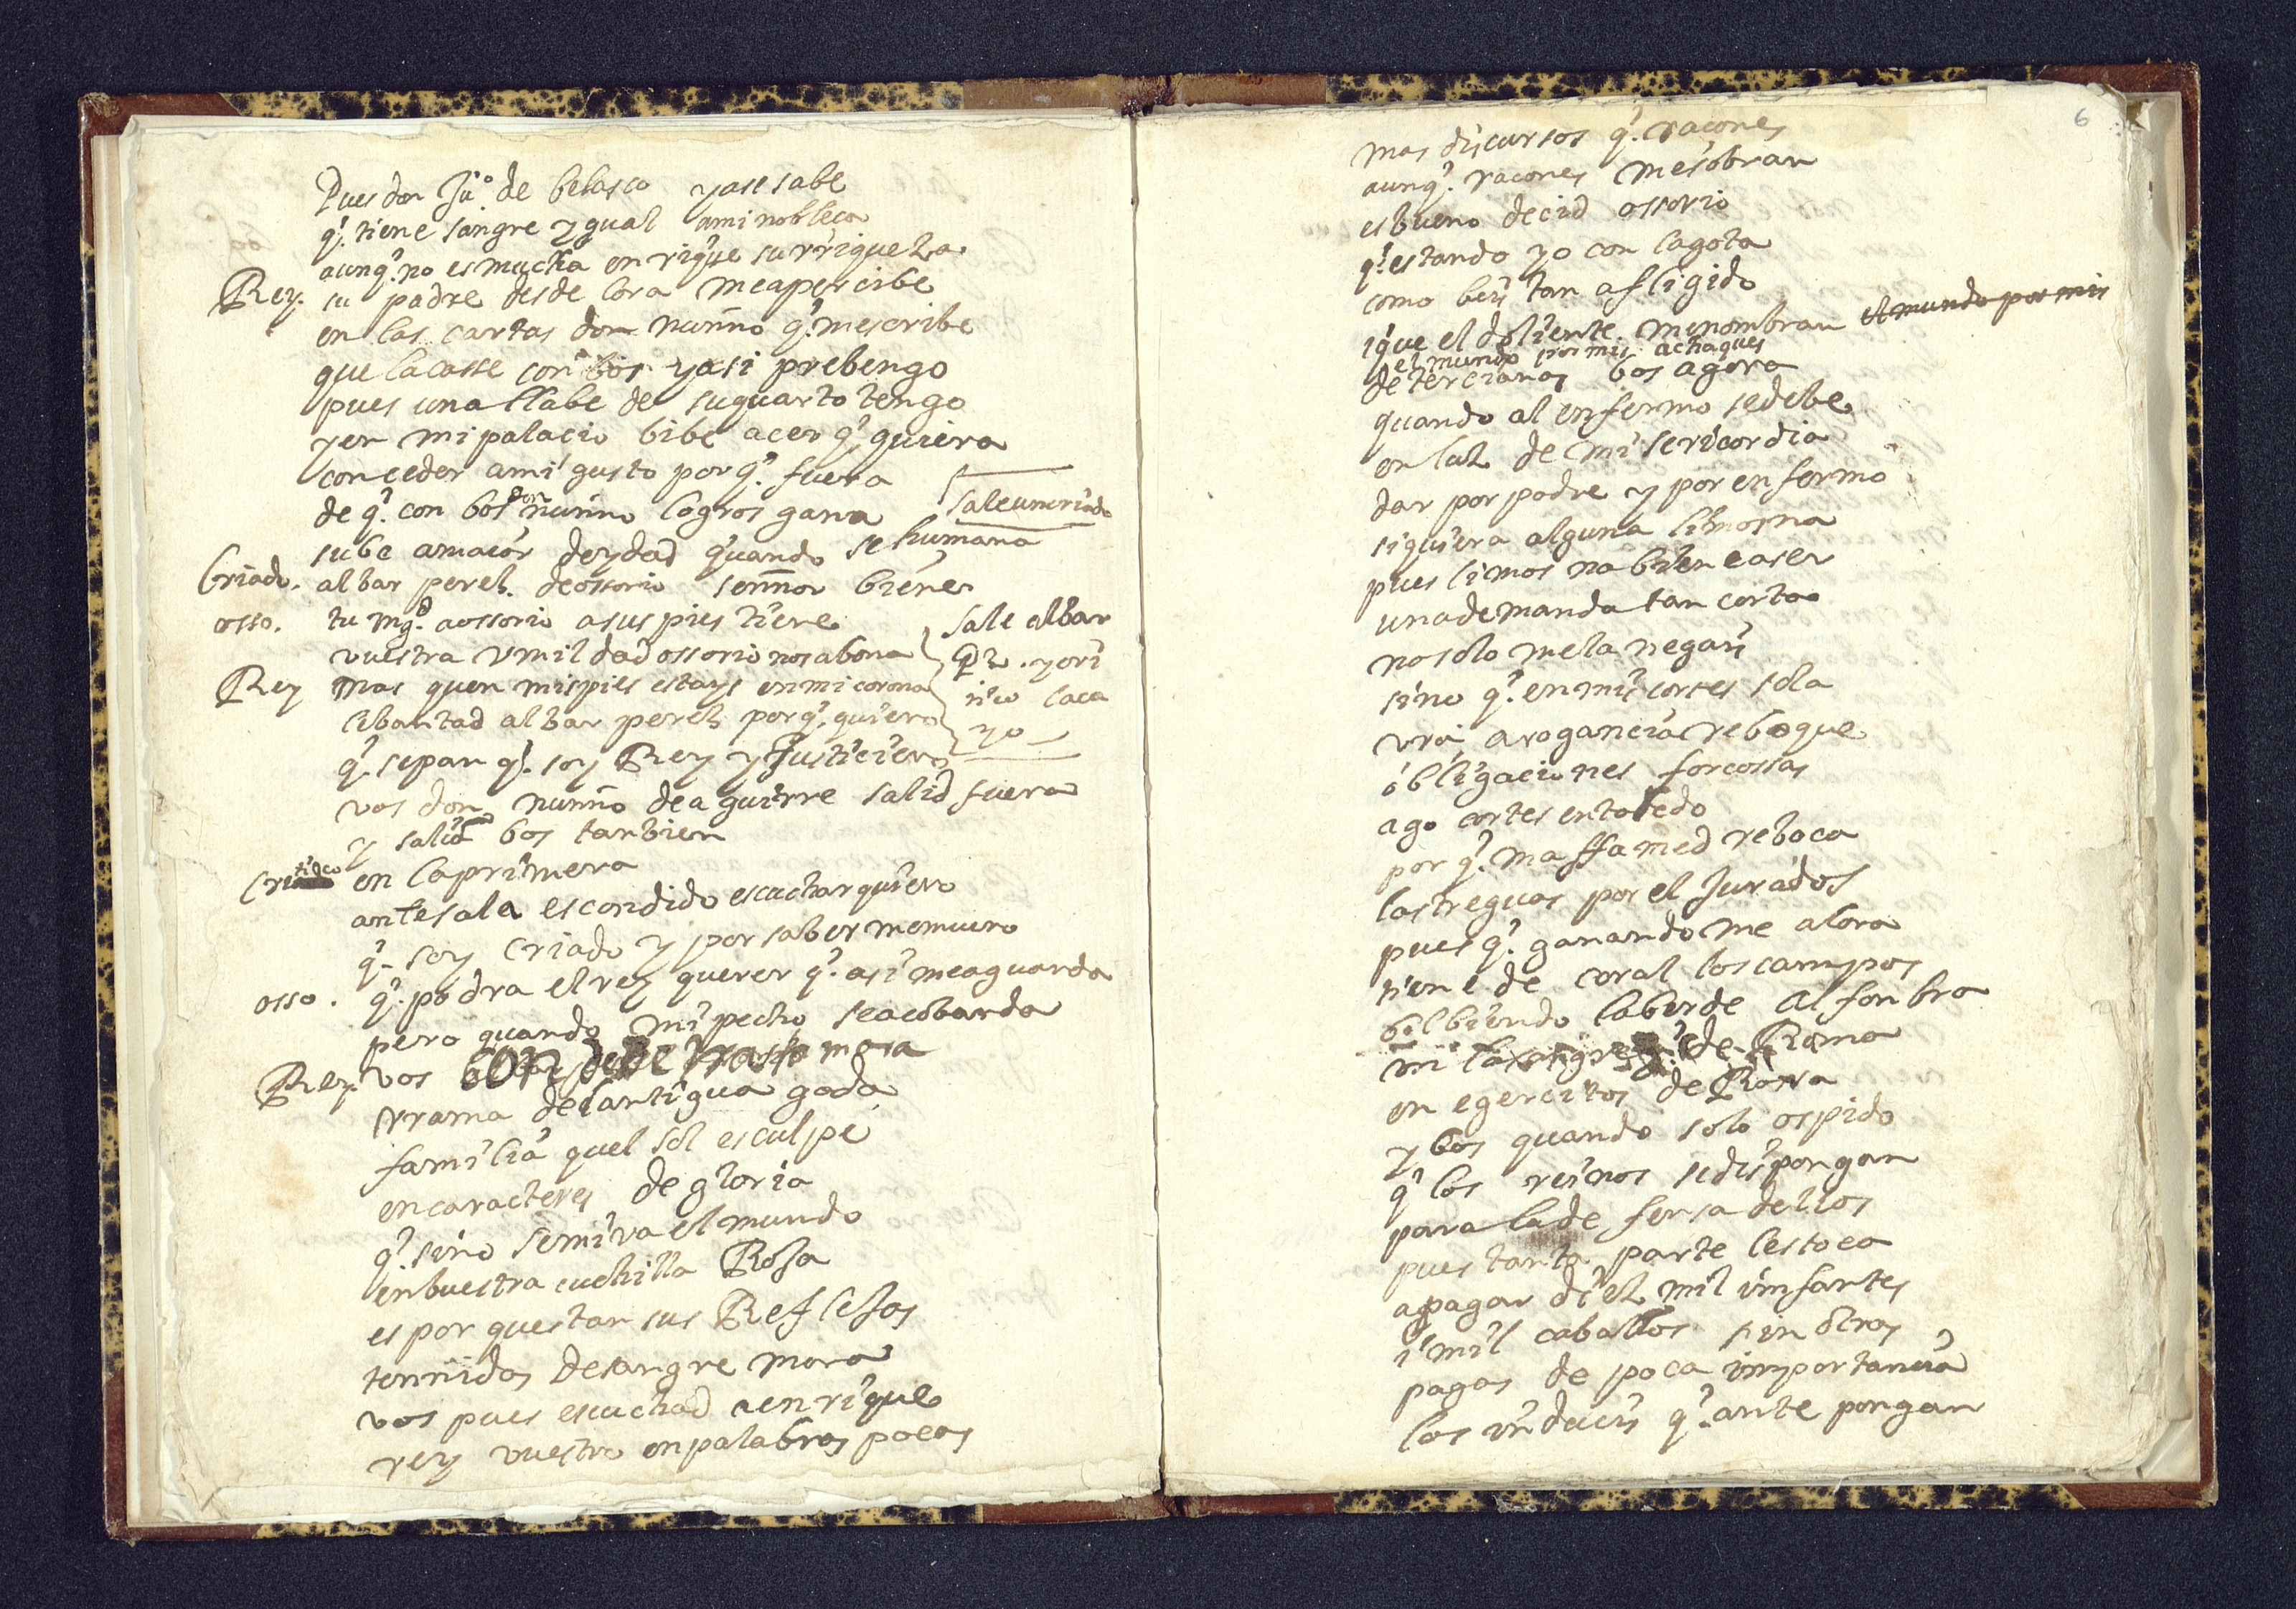 Pues don Juº. de belasco yase sabe
q̃. tiene sangre ygual ami nobleça
aunq̃. no es mucha enrique su rriqueza
Rey. su padre desde lora meapercibe
en las cartas don nunño q̃. mescribe
que la casse con bos yasi prebengo
pues una llabe de su quarto tengo
yen mi palacio bibe acer q̃. quiera
conceder ami gusto porq̃. fuera
de q̃. con bos don nunño logros gana
sale un criado
sube amaior deydad quando se humana
Criado. albar perez. deossorio sennor biene
osso. tu mgd. aossorio asus pies tiene
vuestra vmildad ossorio nos abona
sale albar
Pz. yori
Rey mas quen mis pies estays en mi corona
lebantad albar perez porq̃. quiero
q̃. sepan q̃. soy Rey y Justiciero
vos don nunño de aguirre salid fuera
y salid bos tanbien
en la primera
antesala escondido escuchar quiero
q̃. soy criado y por saber me muero
osso. q̃. podra el rey querer q̃. asi meaguarda
pero quando mi pecho seacobarda
Rey vos
rrama de lantigua goda
familia quel sol esculpe
en caracteres de gloria
q̃. sino se mira el mundo
enbuestra cuchilla Roja
es por questan sus Reflejos
tennidos desangre mora
vos pues escuchad aenrique
rey vuestro en palabras pocas
6
mas discursos q̃. racones
aunq̃. racones mesobran
es bueno decid ossorio
q̃. estando yo con lagota
como beis tan afligido
ique el doliente menombran el mundo por mis
el mundo por mis achaques
de tercianas bos agora
quando al enfermo se debe
en laz de misericordia
dar por padre y por enfermo
siquiera alguna limosna
pues limosna bien easer
una demanda tan corta
no solo mela negais
sino q̃. en mis cortes sola
vra. arogancia reboque
obligaciones forcossas
ago cortes entoledo
por q̃. maffamed reboca
lastreguas por el Jurados
pues q̃. ganando me alora
tiene de coral los campos
bilbiendo laberde alfonbra
de Roma
en egercitos de Rota
y bos quando solo os pido
q̃ los reinos se dispongan
para la defensa dellos
pues tanta parte les toca
apagar diez mil infantes
i mil caballos sin otras
pagas de poca importancia
los inducis q̃. ante pongan